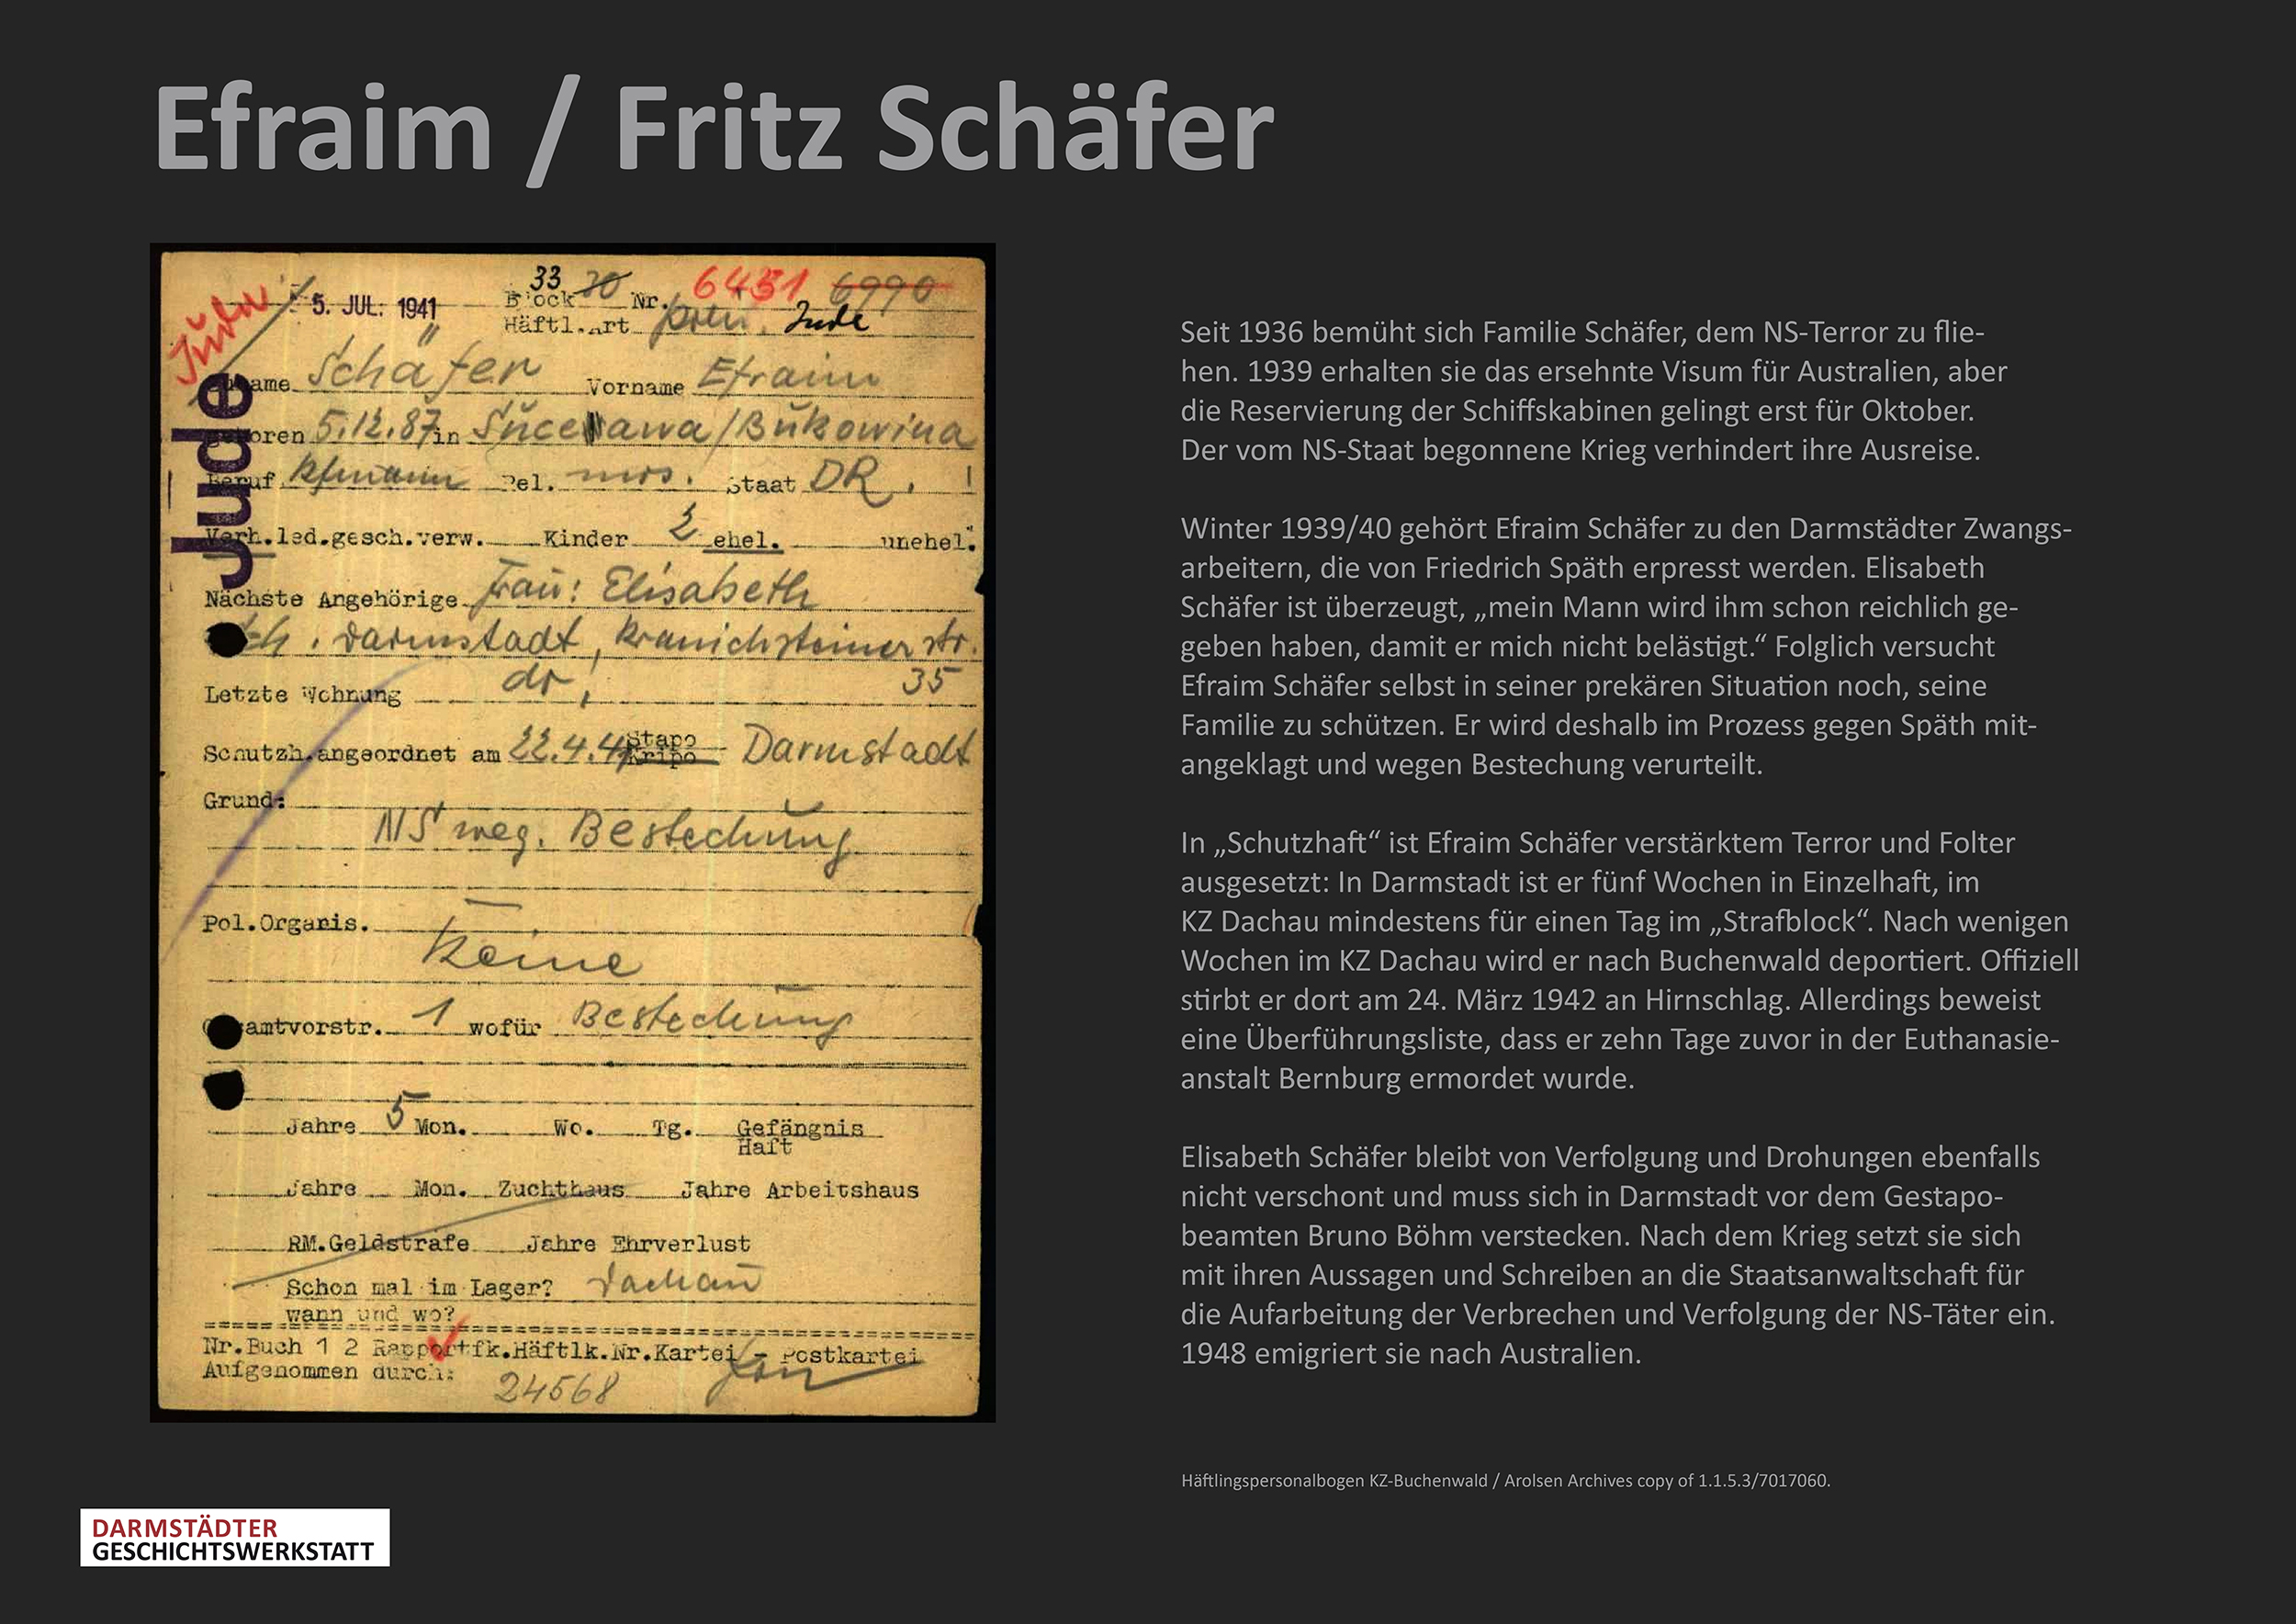 Efraim / Fritz Schäfer
Juden
5. JUL. 1941
33 30
Block Nr. 6451 6990
Häftl.Art polit. Jude
Jude
Name Schäfer Vorname Efraim
geboren 5.12.87 in Sučeawa/Bukowina
Beruf Kfmann Rel. mos. Staat DR.
Verh.led.gesch.verw. Kinder 2 ehel. unehel.
Nächste Angehörige Frau: Elisabeth
Darmstadt, Kranichsteiner str.
35
Letzte Wohnung do,
Schutzh.angeordnet am 22.4.41 Stapo Kripo Darmstadt
Grund:
NS weg. Bestechung
Pol.Organis.
Keine
amtvorstr. 1 wofür Bestechung
Jahre 5 Mon. Wo. Tg. Gefängnis
Haft
Jahre Mon. Zuchthaus Jahre Arbeitshaus
RM.Geldstrafe Jahre Ehrverlust
Schon mal im Lager? Dachau
wann und wo?
Nr.Buch 1 2 Rapportfk.Häftlk.Nr.Kartei - Postkartei
Aufgenommen durch:
24568
Seit 1936 bemüht sich Familie Schäfer, dem NS-Terror zu flie-
hen. 1939 erhalten sie das ersehnte Visum für Australien, aber
die Reservierung der Schiffskabinen gelingt erst für Oktober.
Der vom NS-Staat begonnene Krieg verhindert ihre Ausreise.
Winter 1939/40 gehört Efraim Schäfer zu den Darmstädter Zwangs-
arbeitern, die von Friedrich Späth erpresst werden. Elisabeth
Schäfer ist überzeugt, „mein Mann wird ihm schon reichlich ge-
geben haben, damit er mich nicht belästigt.“ Folglich versucht
Efraim Schäfer selbst in seiner prekären Situation noch, seine
Familie zu schützen. Er wird deshalb im Prozess gegen Späth mit-
angeklagt und wegen Bestechung verurteilt.
In „Schutzhaft“ ist Efraim Schäfer verstärktem Terror und Folter
ausgesetzt: In Darmstadt ist er fünf Wochen in Einzelhaft, im
KZ Dachau mindestens für einen Tag im „Strafblock“. Nach wenigen
Wochen im KZ Dachau wird er nach Buchenwald deportiert. Offiziell
stirbt er dort am 24. März 1942 an Hirnschlag. Allerdings beweist
eine Überführungsliste, dass er zehn Tage zuvor in der Euthanasie-
anstalt Bernburg ermordet wurde.
Elisabeth Schäfer bleibt von Verfolgung und Drohungen ebenfalls
nicht verschont und muss sich in Darmstadt vor dem Gestapo-
beamten Bruno Böhm verstecken. Nach dem Krieg setzt sie sich
mit ihren Aussagen und Schreiben an die Staatsanwaltschaft für
die Aufarbeitung der Verbrechen und Verfolgung der NS-Täter ein.
1948 emigriert sie nach Australien.
Häftlingspersonalbogen KZ-Buchenwald / Arolsen Archives copy of 1.1.5.3/7017060.
DARMSTÄDTER
GESCHICHTSWERKSTATT